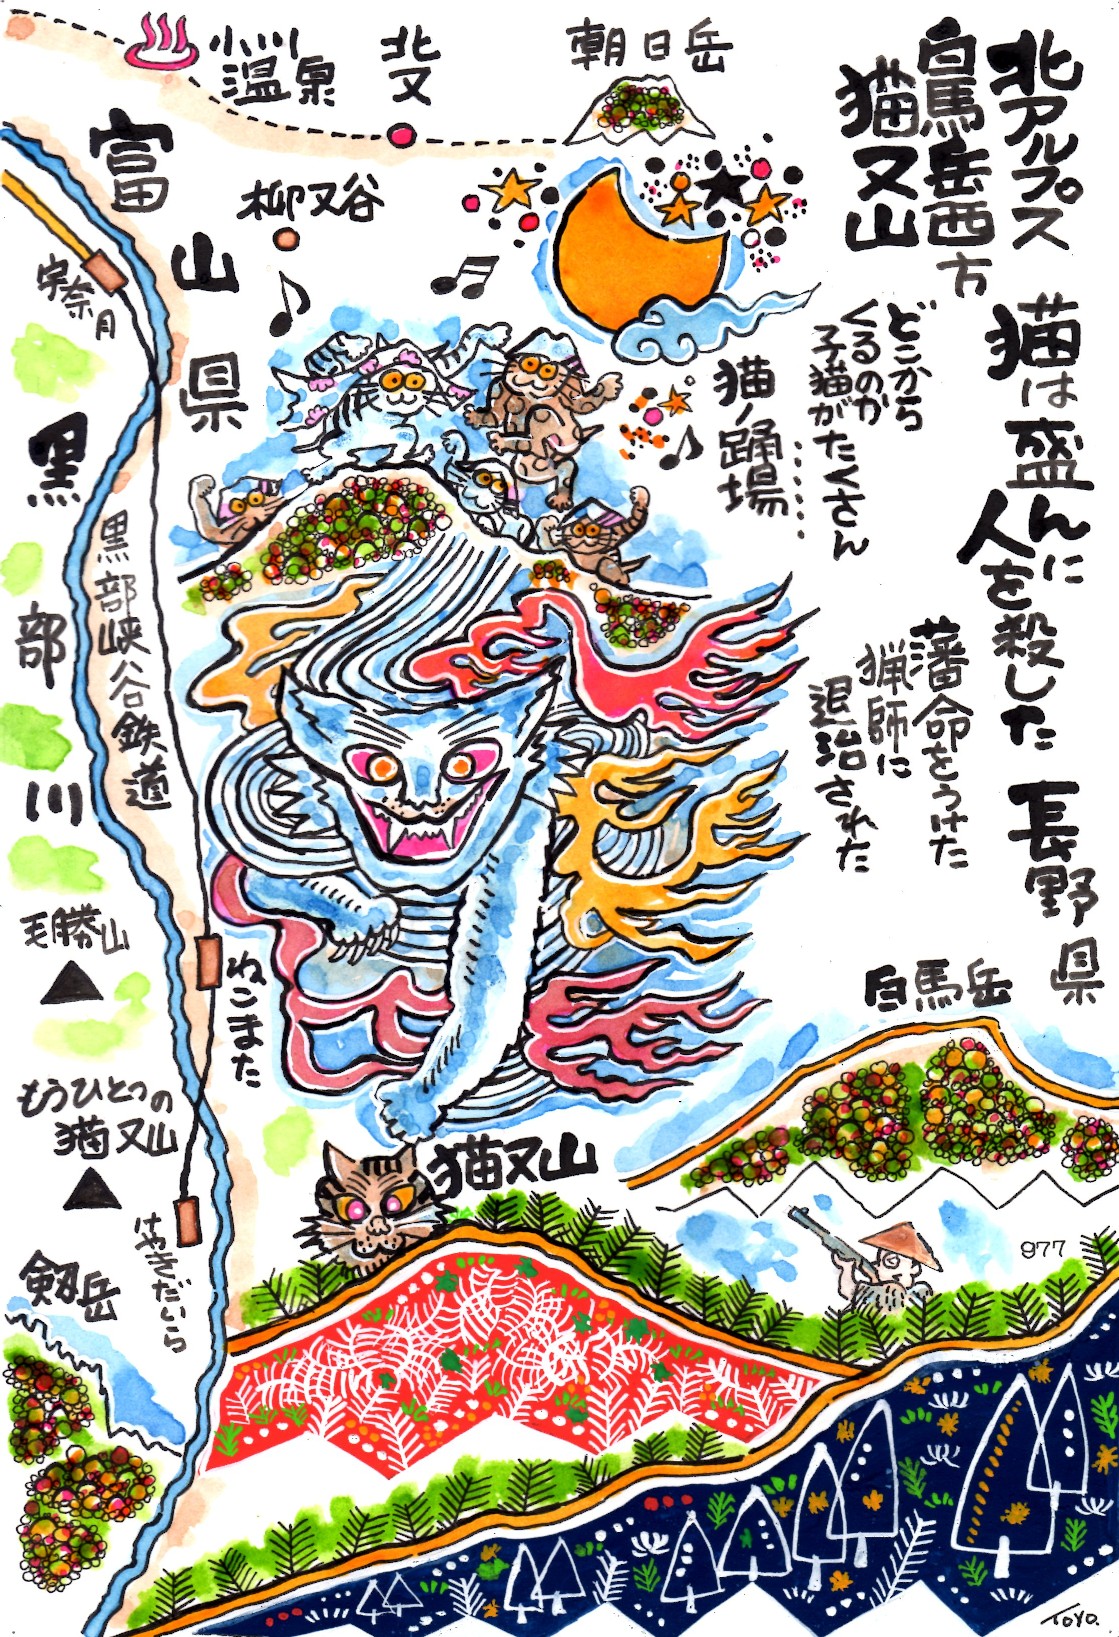 北アルプス
白馬岳西方
猫又山
猫は盛んに
人を殺した
どこから
くるのか
子猫がたくさん
‥‥‥
猫ノ踊場
藩命をうけた
猟師に
退治された
長野県
白馬岳
朝日岳
北又
小川
温泉
柳又谷
富山県
宇奈月
黒部川
黒部峡谷鉄道
毛勝山
ねこまた
もうひとつの
猫又山
猫又山
けやきだいら
剱岳
977
TOYO.